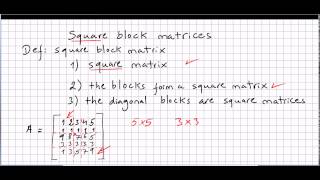 Square block matrices
Def: square block matrix
1) square matrix
2) the blocks form a square matrix
3) the diagonal blocks are square matrices
A =
1 2 3 4 5
1 1 1 1 1
9 8 7 6 5
3 3 3 3 3
1 3 5 7 9
5×5 3×3